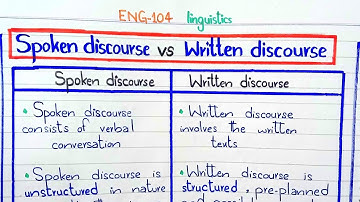 ENG-104 linguistics
Spoken discourse vs Written discourse
Spoken discourse Written discourse
• Spoken discourse
consists of verbal
conversation
• Written discourse
involves the written
texts
• Spoken discourse is
unstructured in nature
• Written discourse is
structured, pre-planned
and